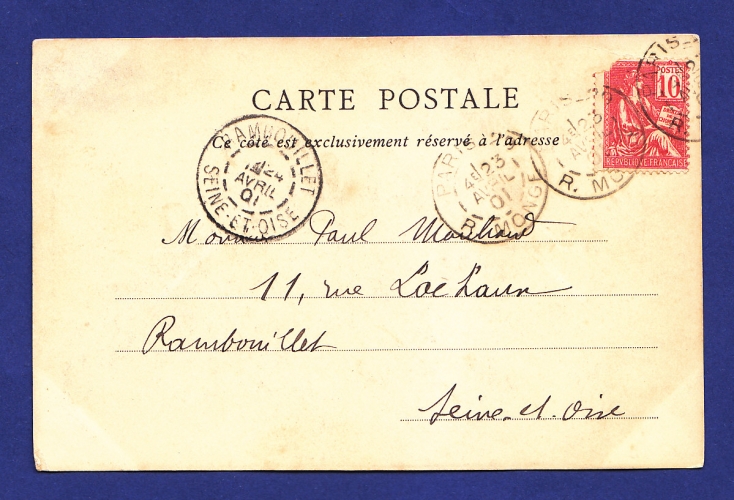 CARTE POSTALE
Ce côté est exclusivement réservé à l'adresse
POSTES
10
REPVBLIQVE FRANCAISE
RAMBOUILLET
24
AVRIL
01
SEINE-ET-OISE
PARIS
4E 23
AVRIL
01
R. MONGE
PARIS
23
R. MO
PARIS
R
Paul
11, rue
Rambouillet
Seine-et-Oise